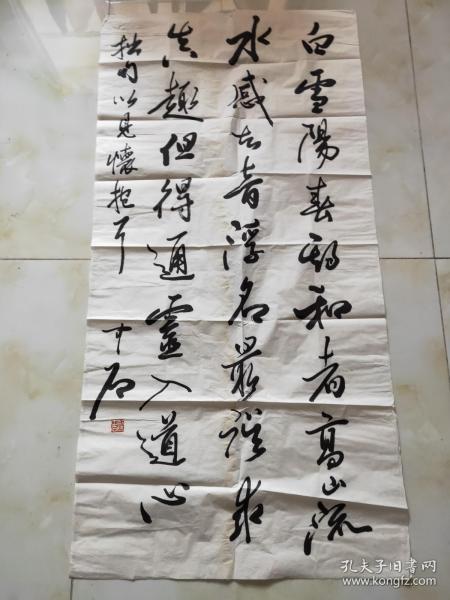 白雪陽春和者高山流
水感知音浮名最誤求
真趣但得通靈入道心
拙句以見懷抱耳 石
孔夫子旧书网
www.kongfz.com